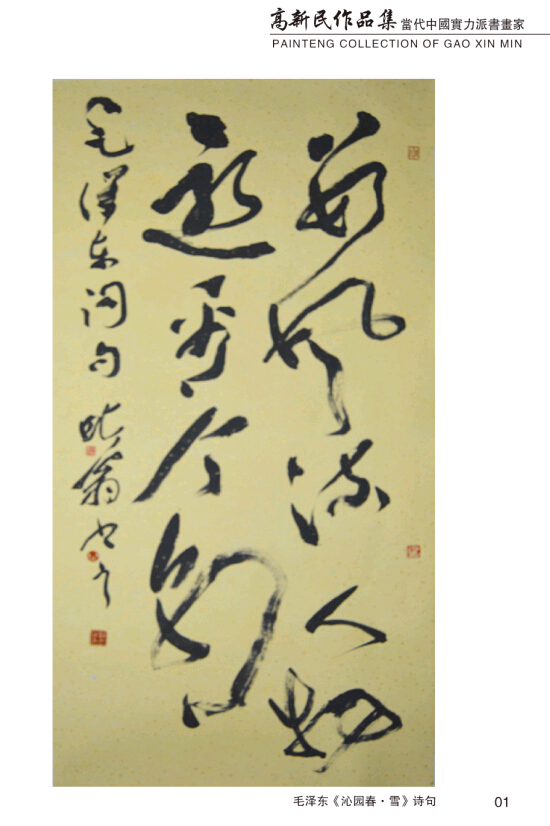 高新民作品集 當代中國實力派書畫家
PAINTENG COLLECTION OF GAO XIN MIN
數風流人物
還看今朝
毛澤東詞句
翁书
毛泽东《沁园春·雪》诗句
01